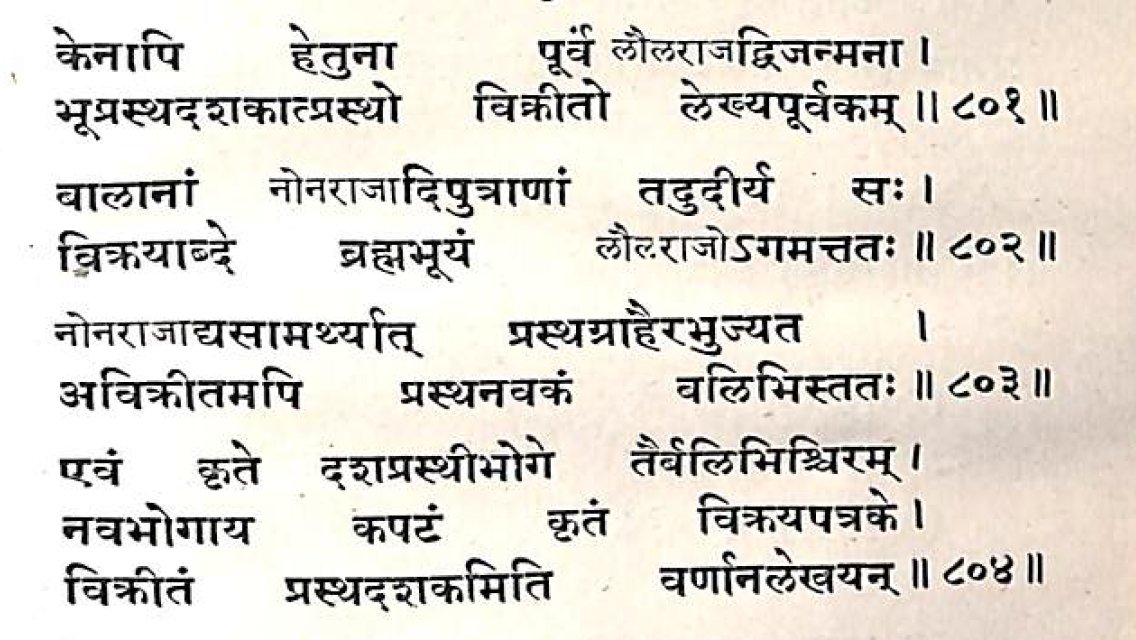 केनापि हेतुना पूर्वं लौलराजद्विजन्मना ।
भूप्रस्थदशकात्प्रस्थो विक्रीतो लेख्यपूर्वकम् ॥ ८०१ ॥
बालानां नोनराजादिपुत्राणां तदुदीर्य सः ।
विक्रयाब्दे ब्रह्मभूयं लौलराजोऽगमत्ततः ॥ ८०२ ॥
नोनराजाद्यसामर्थ्यात् प्रस्थग्राहैरभुज्यत ।
अविक्रीतमपि प्रस्थनवकं वलिभिस्ततः ॥ ८०३ ॥
एवं कृते दशप्रस्थीभोगे तैर्बलिभिश्चिरम् ।
नवभोगाय कपटं कृतं विक्रयपत्रके ।
विक्रीतं प्रस्थदशकमिति वर्णानलेखयन् ॥ ८०४ ॥